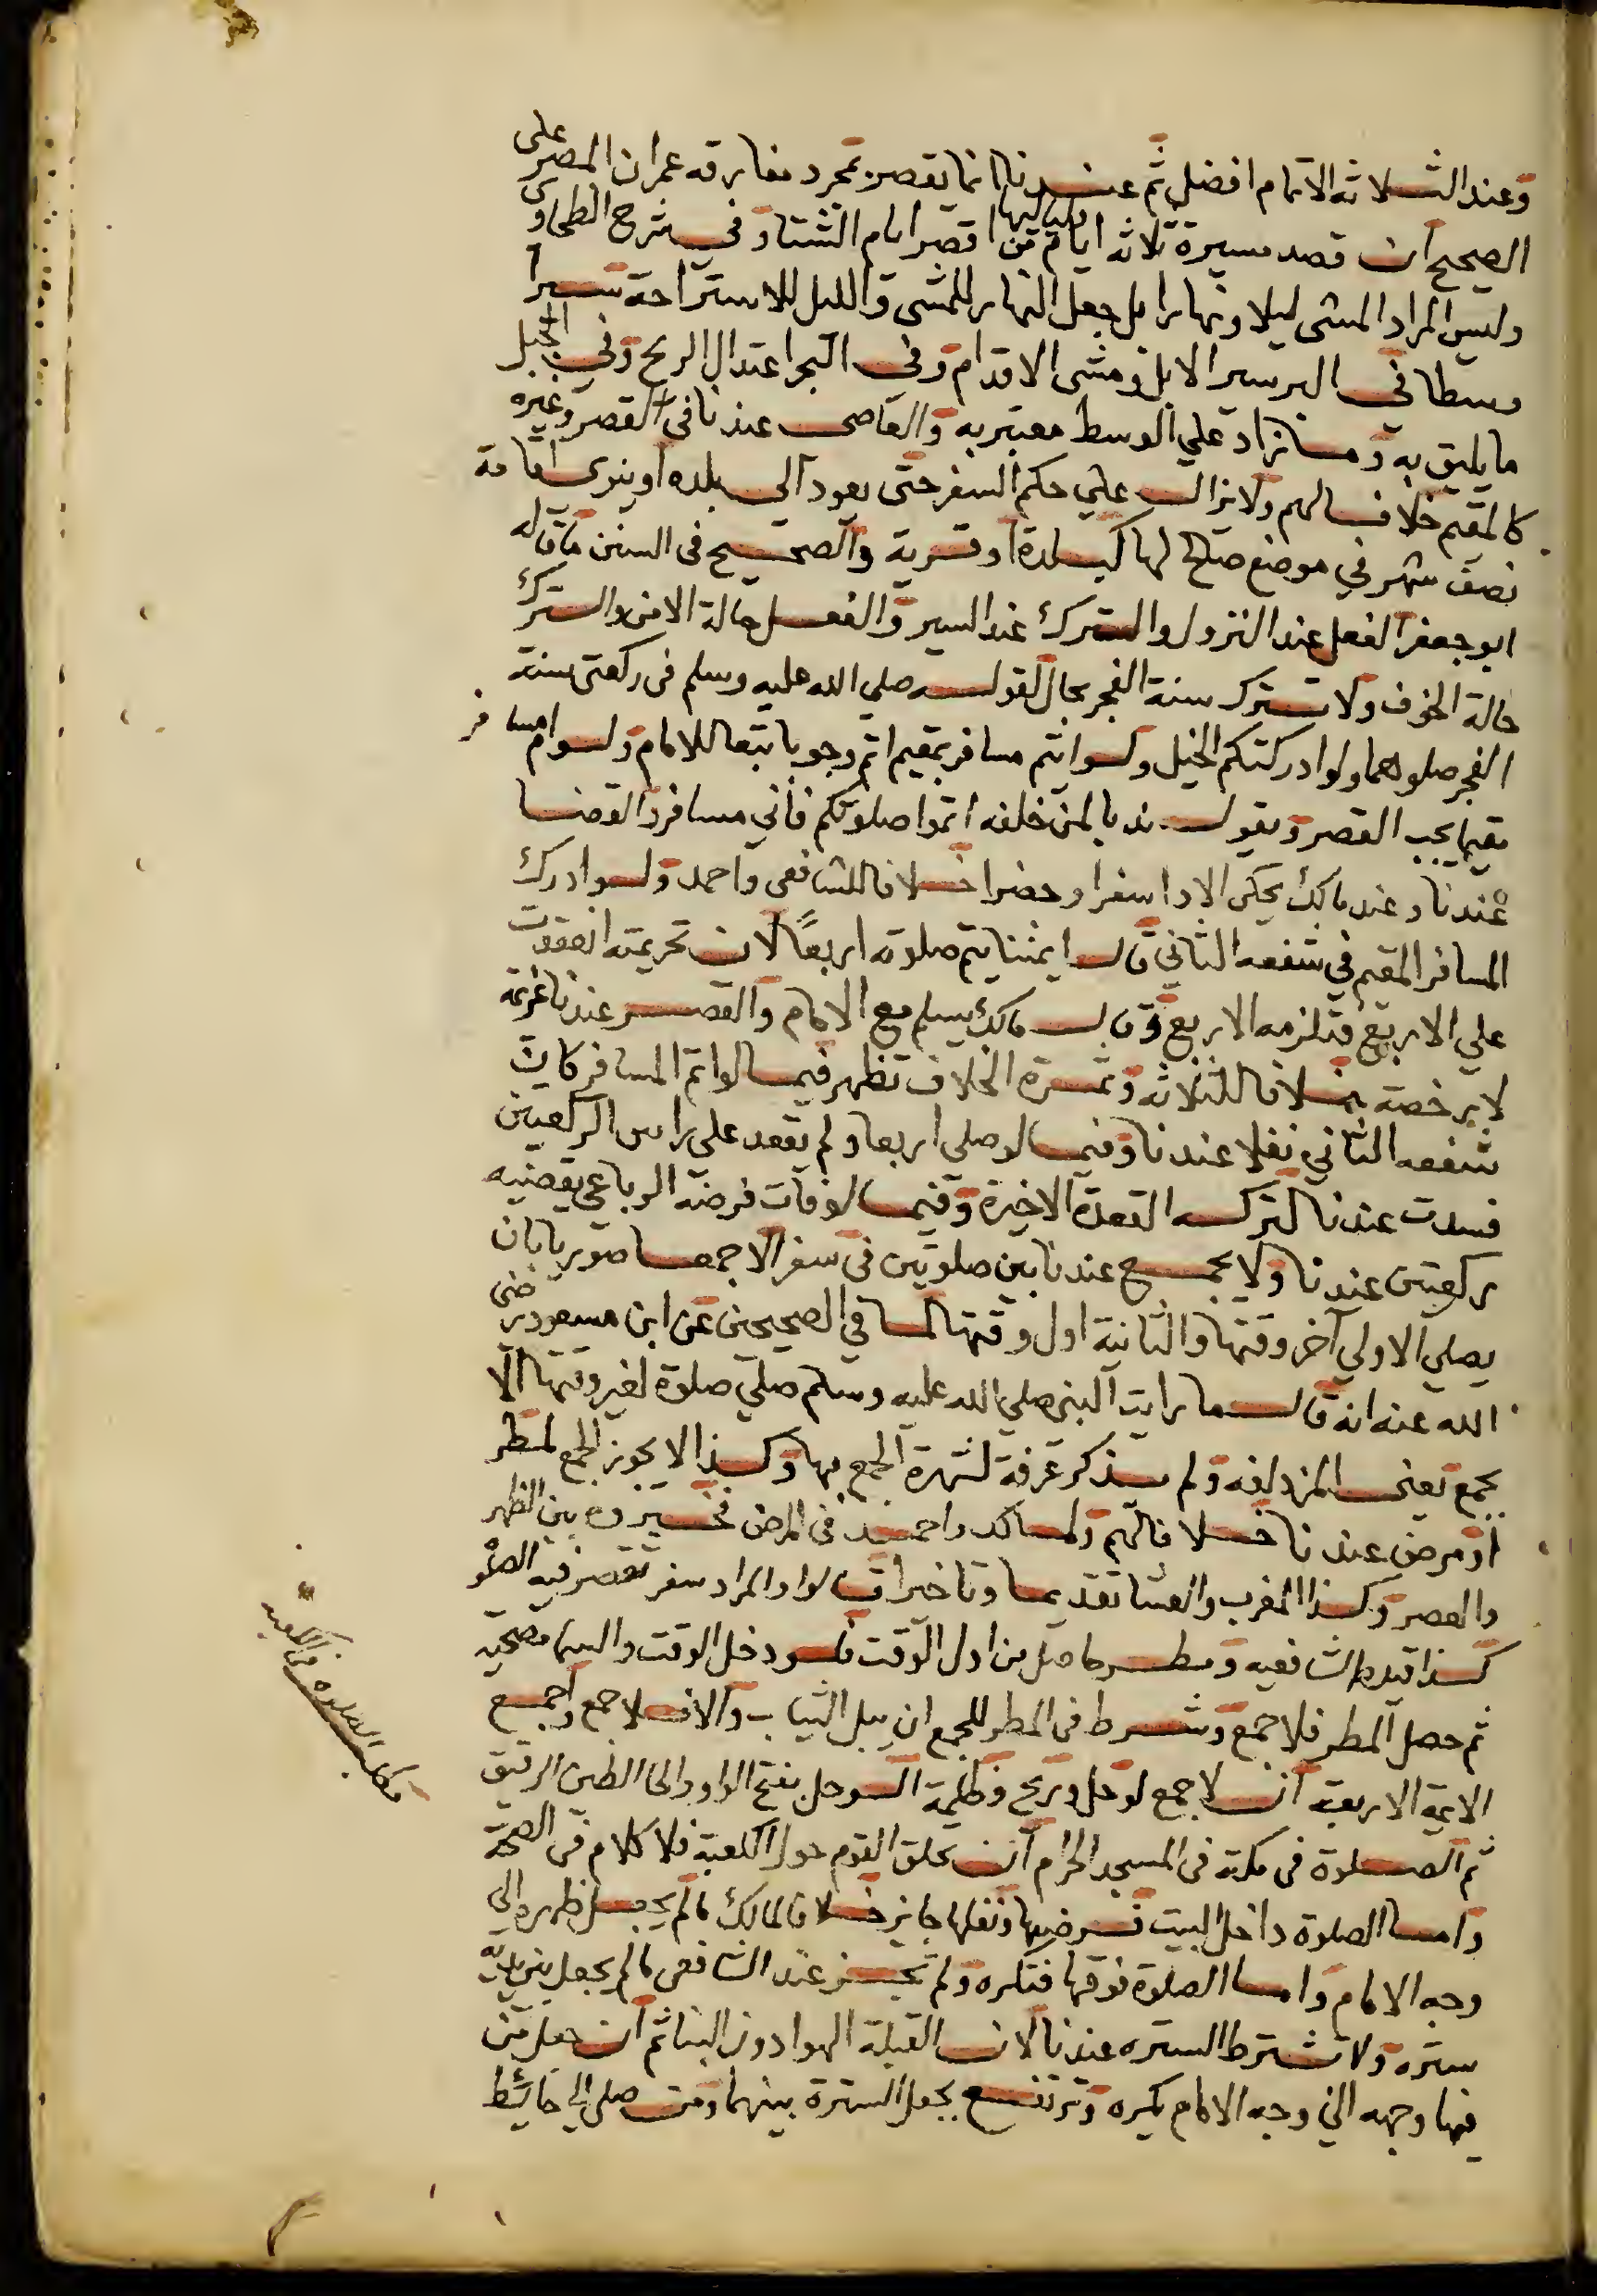 وعند الثلاثة الاتمام افضل ثم عندنا انما يقصر بمجرد مفارقه عمران المصر على
الصحيح ان قصد مسيرة ثلاثه ايام بلياليها من اقصر ايام الشتا وفي شرح الطحاوى
وليس المراد المشى ليلا ونهارا بل جعل النهار للمشى والليل للاستراحة سيرا
وسطا في البر سير الابل ومشى الاقدام وفى البحر اعتدال الريح وفي الجبل
ما يليق به وما زاد علي الوسط معتبر به والعاصى عندنا فى القصر وغيره
كالمقيم خلافا لهم ولا يزال علي حكم السفر حتى يعود الى بلده او ينوى اقامة
نصف شهر في موضع صالح لها كبلدة او قرية والصحيح فى السنن ما قاله
ابو جعفر الفعل عند النزول والترك عند السير والفعل حالة الامن والترك
حالة الخوف ولا تترك سنة الفجر بحال لقوله صلي الله عليه وسلم فى ركعتى سنة
الفجر صلوهما ولو ادركتكم الخيل ولو ائتم مسافر بمقيم اتم وجوبا تبعا للامام ولو ام مسافر
مقيما يجب القصر ويقول ندبا لمن خلفه اتموا صلوتكم فاني مسافر والقضا
عندنا وعند مالك يحكى الادا سفرا وحضرا خلافا للشافعى واحمد ولو ادرك
المسافر المقيم في شفعه الثاني قال ايمتنا يتم صلوته اربعاً لان تحريمته انعقدت
علي الاربع فتلزمه الاربع وقال مالك يسلم مع الامام والقصر عندنا عزيمة
لا رخصة خلافا للثلاثه وثمرة الخلاف تظهر فيما لو اتم المسافر كان
شفعه الثاني نفلا عندنا وفيما لو صلى اربعا ولم يقعد على راس الركعتين
فسدت عندنا لتركه القعدة الاخيرة وفيما لو فات فرضه الرباعي يقضيه
ركعتين عندنا ولا يجمع عندنا بين صلوتين فى سفر الا جمعا صوريا بان
يصلي الاولي آخر وقتها والثانية اول وقتها لما في الصحيحين عن ابن مسعود رضى
الله عنه انه قال ما رايت النبى صلي الله عليه وسلم صلي صلوة لغير وقتها الا
بجمع يعنى المزدلفه ولم يذكر عرفة لشهرة الجمع بها وكذا لا يجوز الجمع لمطر
او مرض عندنا خلافا لهم ولمالك واحمد فى المرض فخيروه بين الظهر
والعصر وكذا المغرب والعشا تقديما وتاخيرا قالوا والمراد سفر تقصر فيه الصلو
كذا قيده الشافعيه ومطر حاصل من اول الوقت فلو دخل الوقت والسما مصحية
ثم حصل المطر فلا جمع وشرط فى المطر للجمع ان يبل الثياب والا فلا جمع واجمع
الايمة الاربعة ان لا جمع لوحل وريح وظلمة الوحل بفتح الواو والحا الطين الرقيق
ثم الصلوة فى مكة فى المسجد الحرام ان تحلق القوم حول الكعبة فلا كلام فى الصحة
واما الصلوة داخل البيت فرضها ونفلها جايز خلافا لمالك ما لم يجعل ظهره الي
وجه الامام واما الصلوة فوقها فتكره ولم تجز عند الشافعى ما لم يجعل بين يديه
سترة ولا تشترط السترة عندنا لان القبلة الهوا دون البنا ثم ان جعل من
فيها وجهه الي وجه الامام يكره وترتفع بجعل السترة بينهما ومن صلى الي حائط
مطلب الصلوة في الكعبه